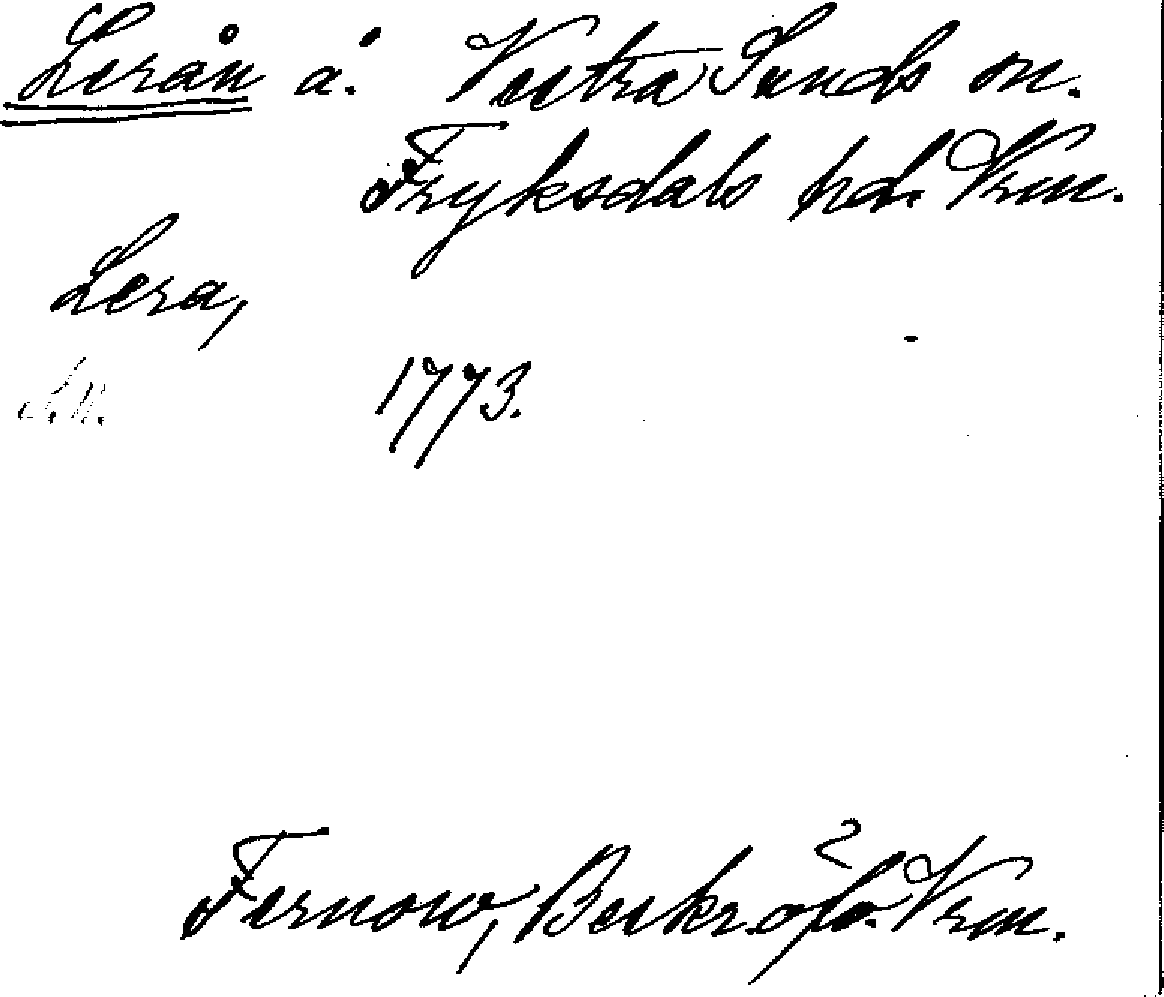 Lerån å. Vestra Sunds sn.
Fryksdals hd. Vrm.
Lera,
S.N. 1773.
Fernow, Beskr. öfv. Vrm.
2